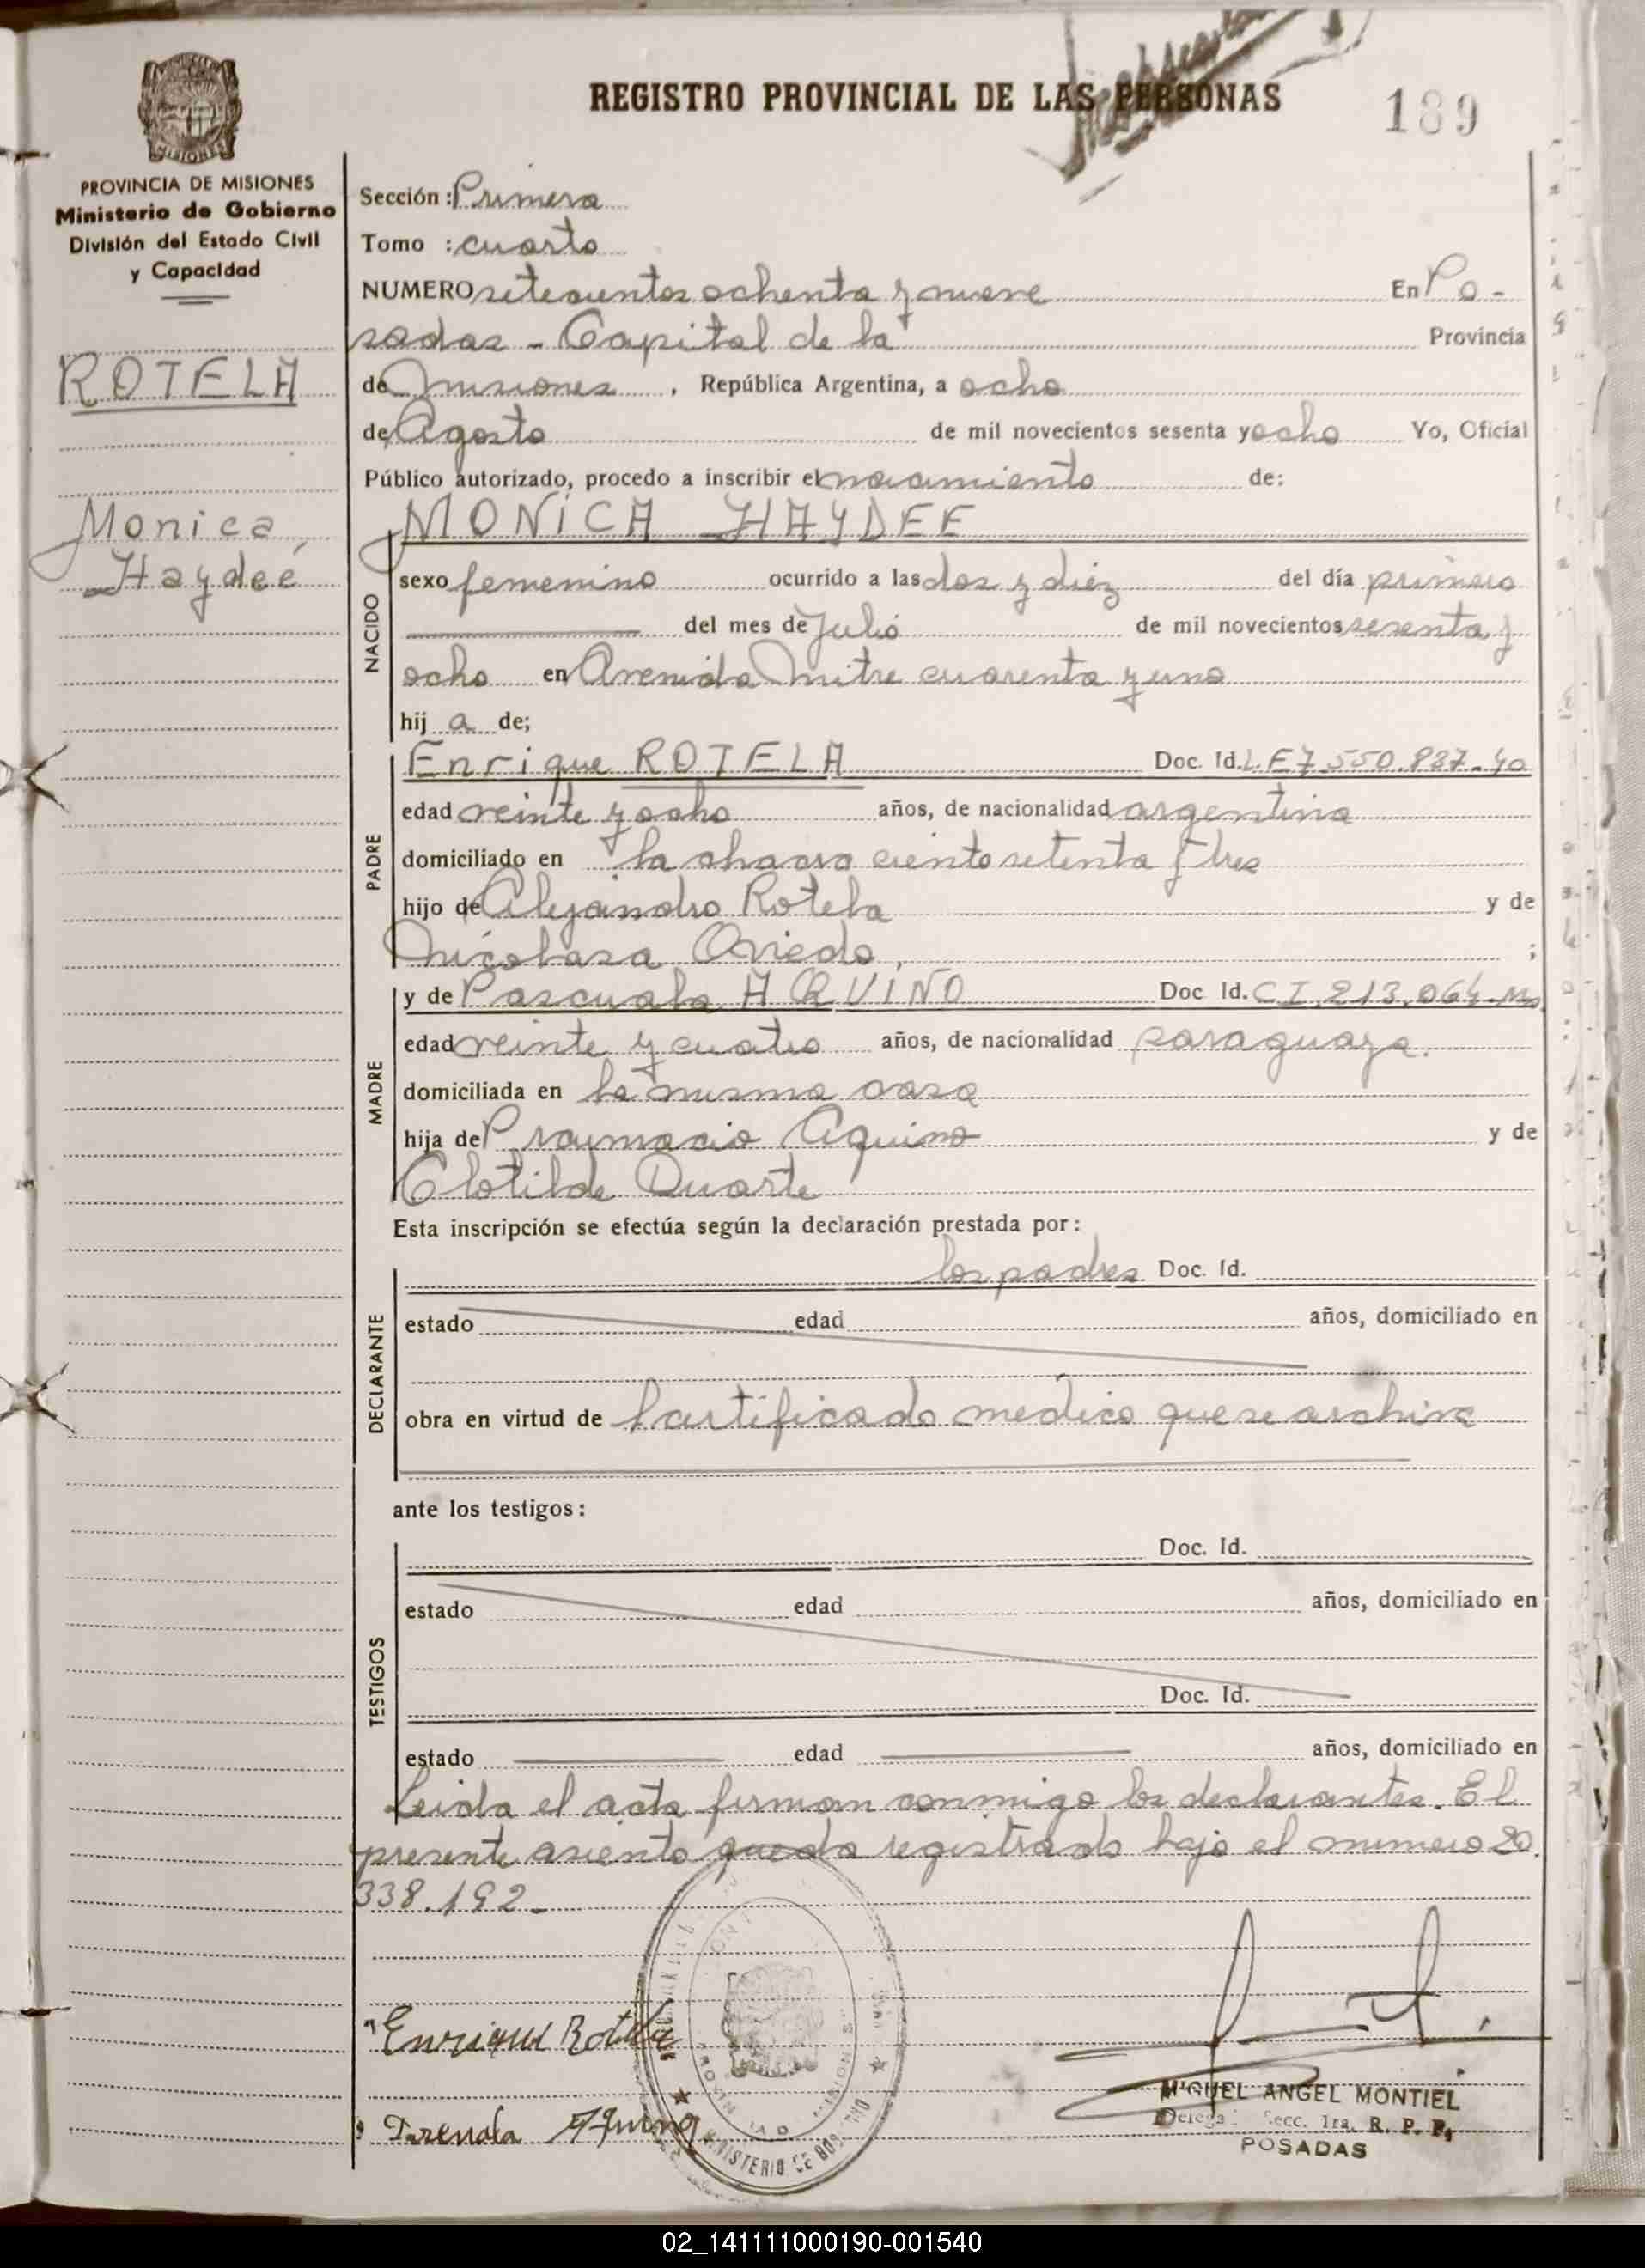 REGISTRO PROVINCIAL DE LAS PERSONAS
189
MISIONES
PROVINCIA DE MISIONES
Ministerio de Gobierno
División del Estado Civil
y Capacidad
ROTELA
Monica
Haydeé
Sección: Primera
Tomo : cuarto
NUMERO setecientos ochenta y nueve En Po-
sadas - Capital de la Provincia
de Misiones, República Argentina, a ocho
de Agosto de mil novecientos sesenta y ocho Yo, Oficial
Público autorizado, procedo a inscribir el nacimiento de:
NACIDO
MONICA HAYDEE
sexo femenino ocurrido a las dos y diéz del día primero
del mes de Julio de mil novecientos sesenta y
ocho en Avenida Mitre cuarenta y uno
hij a de;
PADRE
Enrique ROTELA Doc. Id. L.E 7.550.887-40
edad veinte y ocho años, de nacionalidad argentina
domiciliado en la chacra ciento setenta y tres
hijo de Alejandro Rotela y de
Nicolasa Oviedo, ;
MADRE
y de Pascuala AQUINO Doc Id. C I. 213.064-Ms
edad veinte y cuatro años, de nacionalidad paraguaya.
domiciliada en la misma casa
hija de Aquino y de
Clotilde Duarte
Esta inscripción se efectúa según la declaración prestada por:
DECLARANTE
los padres Doc. Id.
estado edad años, domiciliado en
obra en virtud de certificado medico que se archiva
ante los testigos:
TESTIGOS
Doc. Id.
estado edad años, domiciliado en
Doc. Id.
estado edad años, domiciliado en
Leida el acta firman conmigo los declarantes. El
presente asiento queda registrado bajo el numero 20.
338.192-
Enrique Rotela
Aquino
MINISTERIO DE GOBIERNO
MIGUEL ANGEL MONTIEL
Secc. 1ra. R. P. P.
POSADAS
02_141111000190-001540